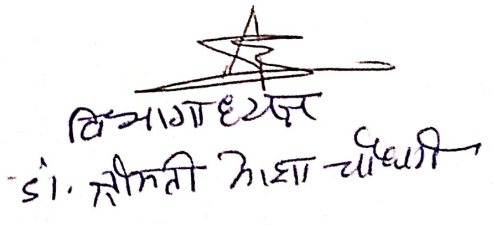 विभागाध्यक्ष
डॉ. श्रीमती आशा चौधरी